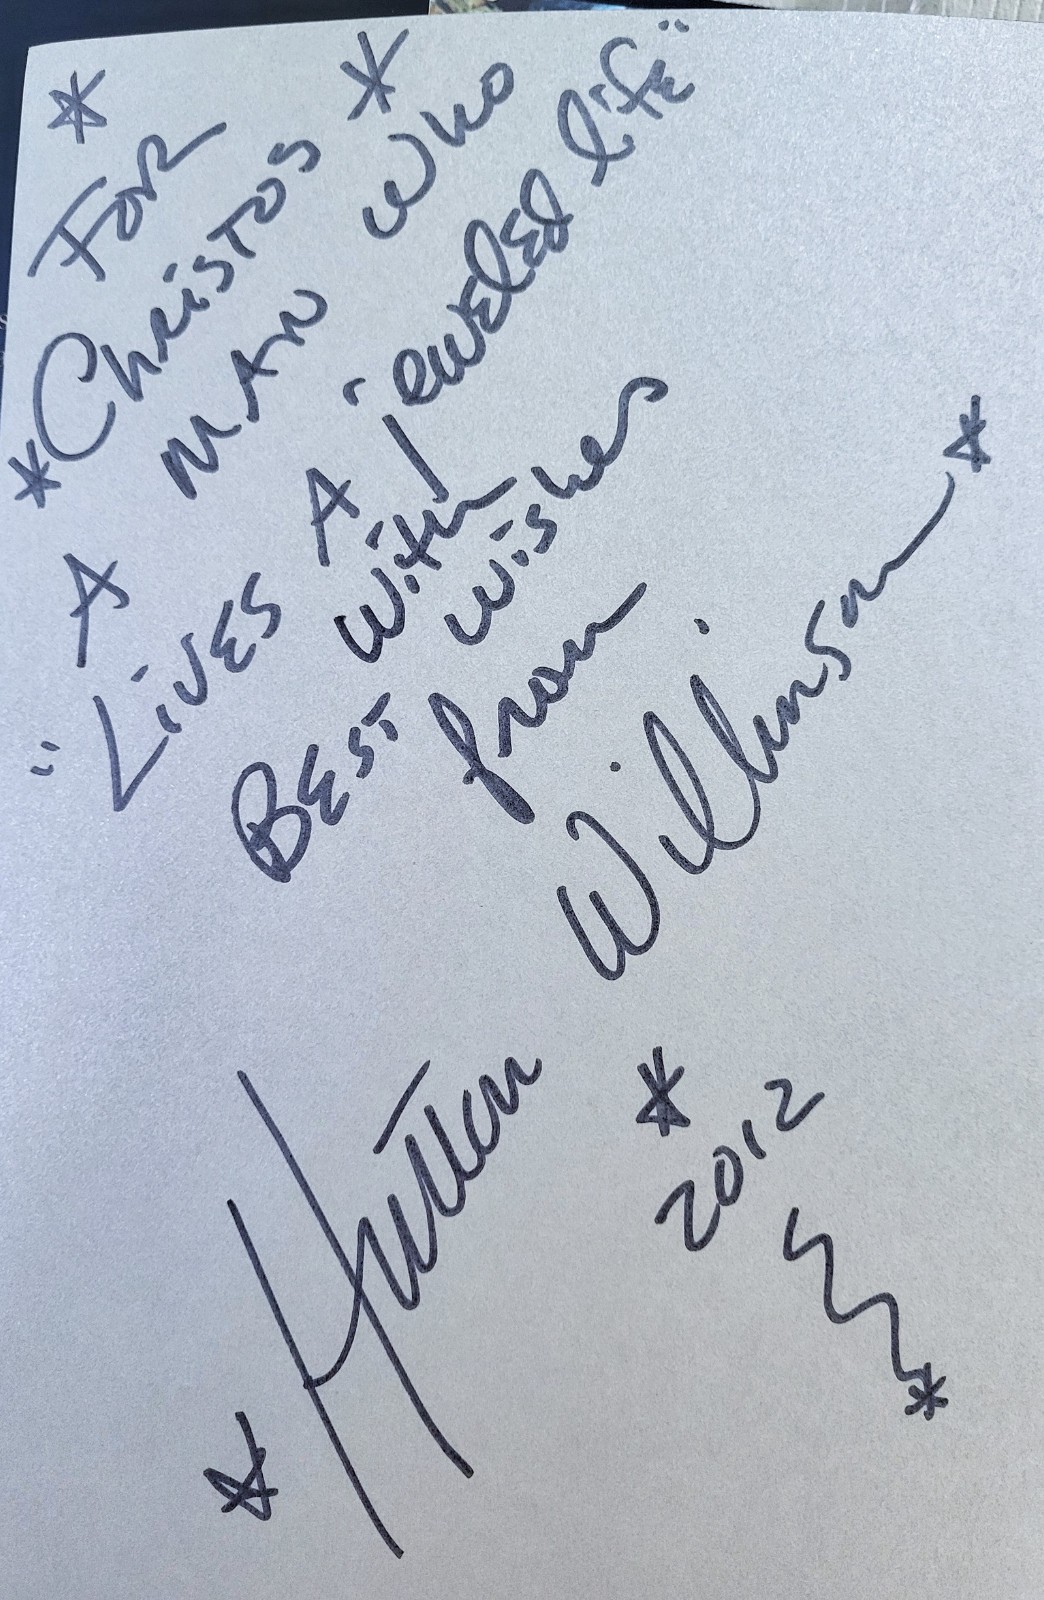 * FOR *
* Christos
A MAN who
"Lives A jeweled life"
with
BEST wishes
from
Wilkinson *
* Hutton
* 2012 *